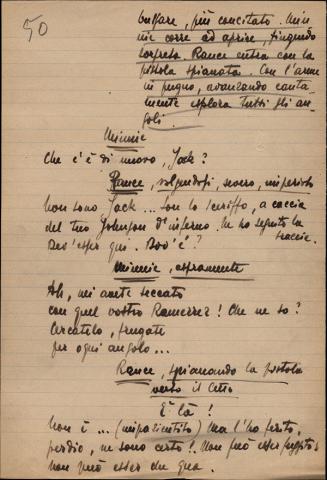 50
bussare, più concitato. Min
nie corre ad aprire, fingendo
sorpresa. Rance entra con la
pistola spianata. Con l'arme
in pugno, avanzando cauta-
mente esplora tutti gli an-
goli.
Minnie
Che c'è di nuovo, Jack?
Rance, volgendosi, severo, imperioso
Non sono Jack... son lo Sceriffo, a caccia
del tuo Johnson d'inferno. Ne ho seguito la
traccia.
Dev'esser qui. Dov'è?
Minnie, aspramente
Ah, mi avete seccato
con quel vostro Ramerrez! Che ne so?
Cercatelo, frugate
per ogni angolo...
Rance, spianando la pistola
verso il letto
È là!
Non è... (impazientito) ma l'ho ferito,
perdio, ne sono certo! Non può esser fuggito!
non può esser che qua.